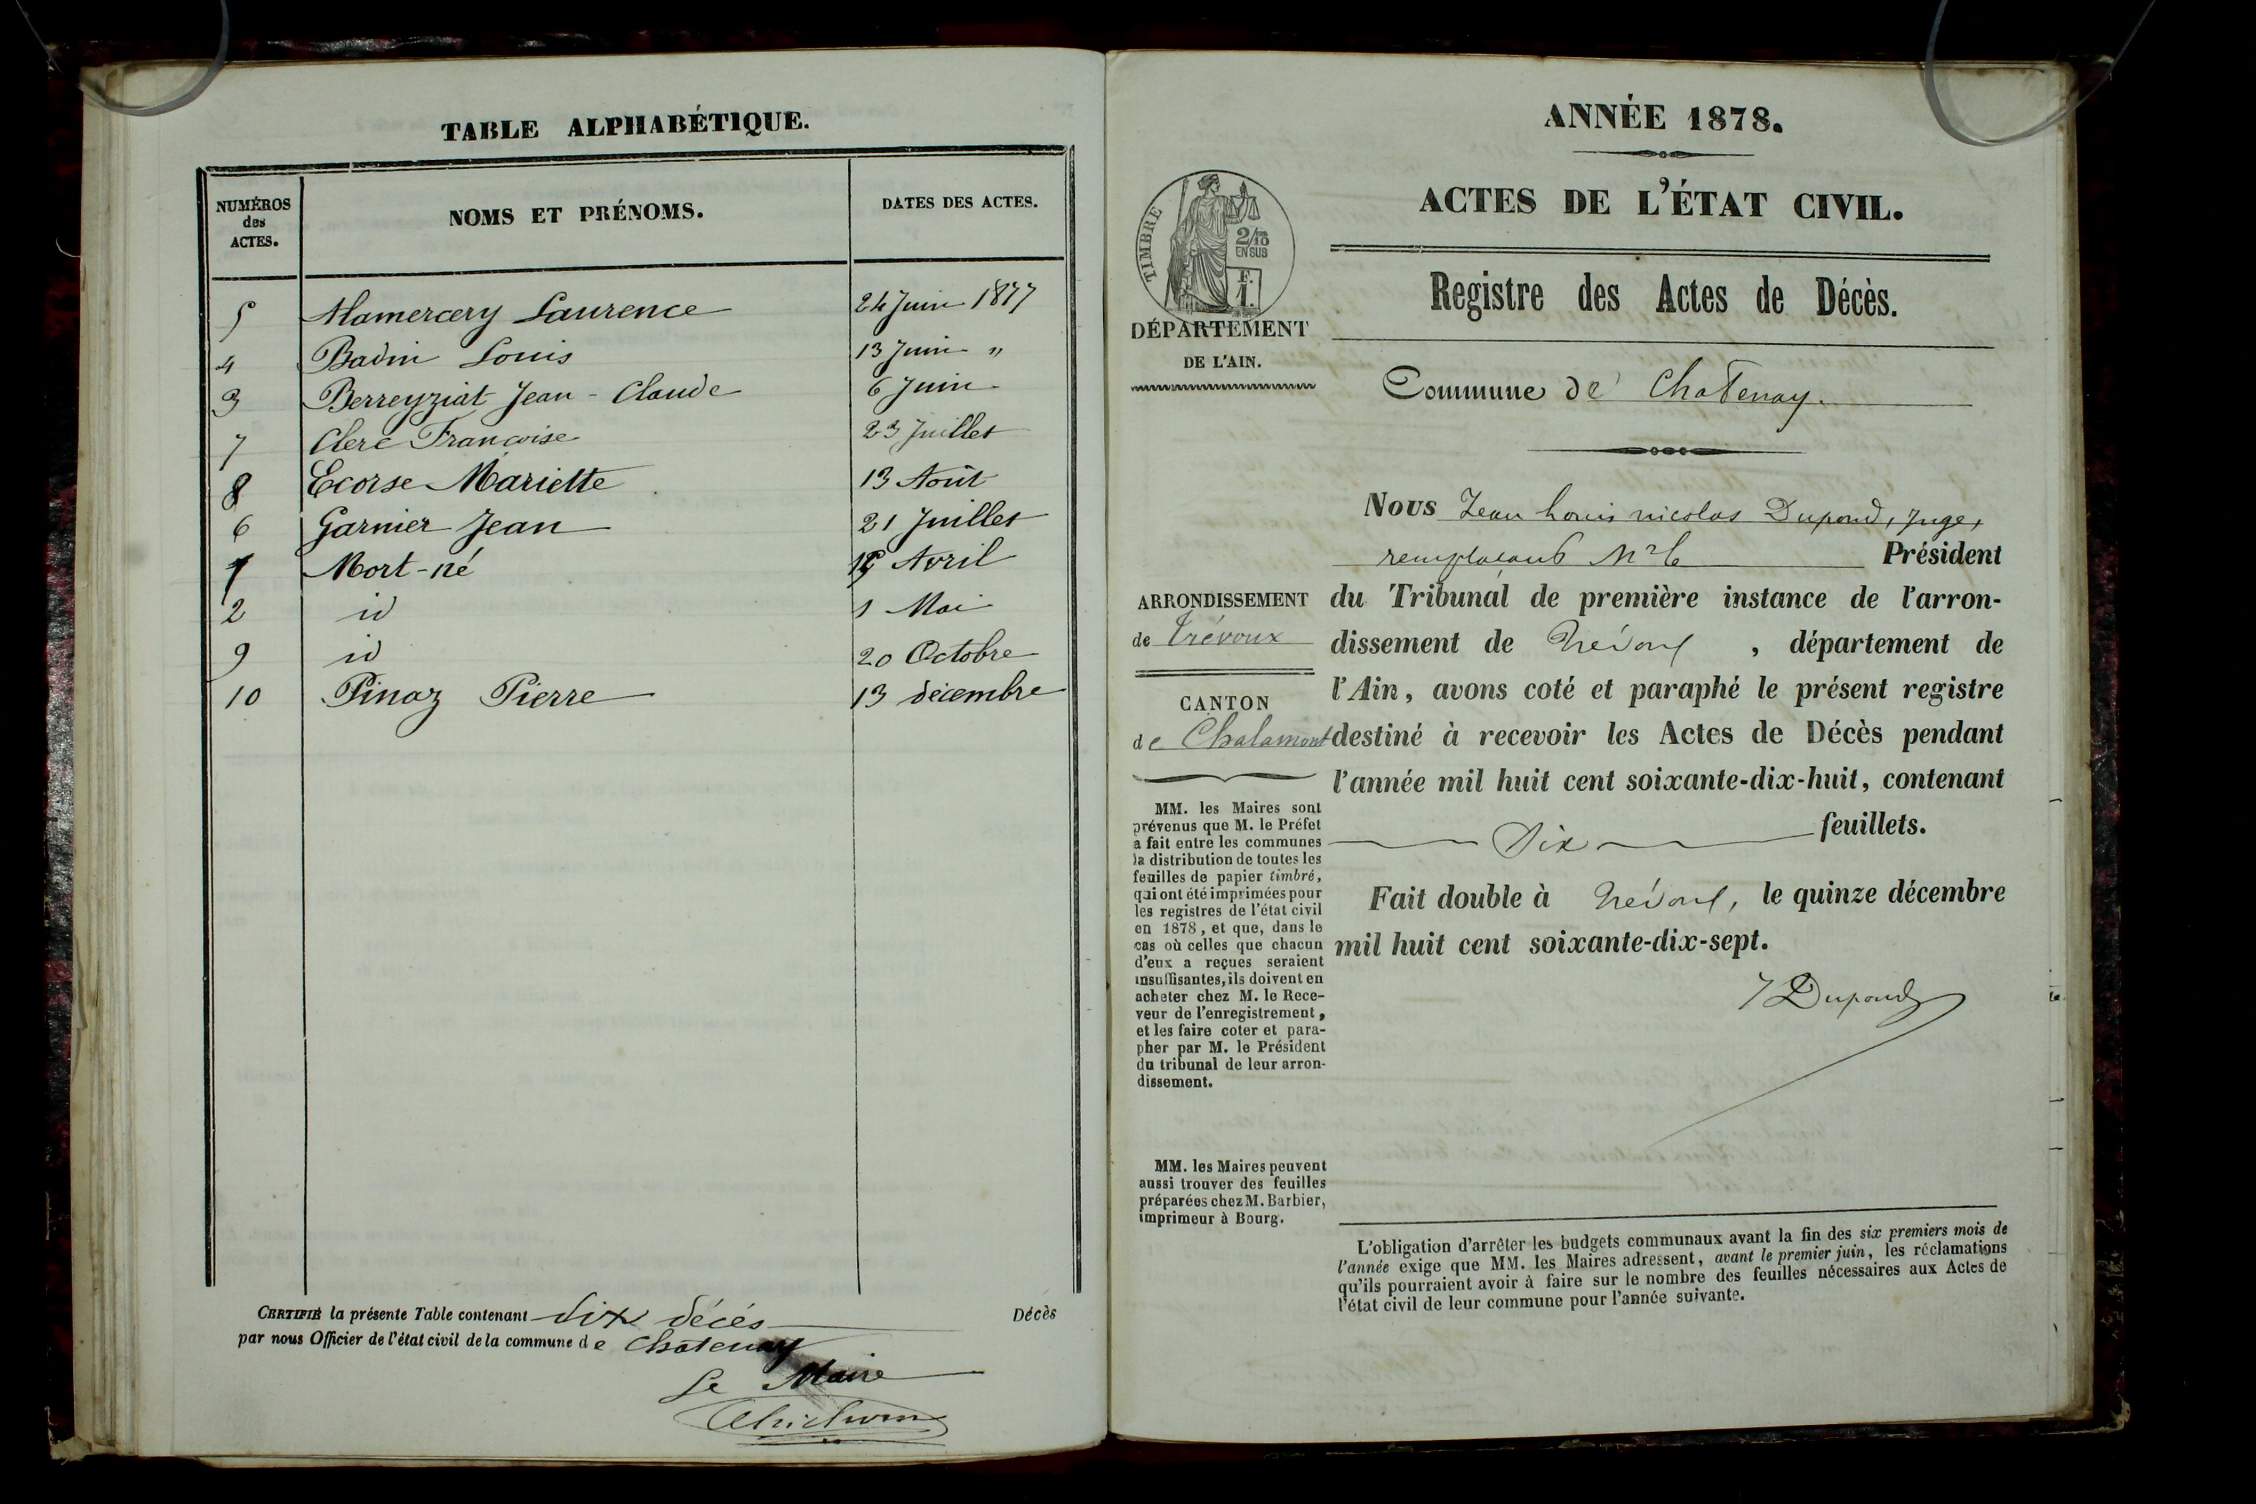 TABLE ALPHABÉTIQUE.
NUMÉROS des ACTES. NOMS ET PRÉNOMS. DATES DES ACTES.
5 Mamercery Laurence 24 Juin 1877
4 Badin Louis 13 Juin "
3 Berreyziat Jean-Claude 6 Juin
7 Clerc Françoise 23 Juillet
8 Ecorse Mariette 13 Août
6 Garnier Jean 21 Juillet
1 Mort-né Avril
2 id 1 Mai
9 id 20 Octobre
10 Pinaz Pierre 13 décembre
CERTIFIÉ la présente Table contenant dix décés Décès
par nous Officier de l'état civil de la commune de Chatenay
Le Maire
ANNÉE 1878.
ACTES DE L'ÉTAT CIVIL.
TIMBRE
2/10
EN SUS
F.
1.
DÉPARTEMENT
DE L'AIN.
Registre des Actes de Décès.
Commune de Chatenay.
ARRONDISSEMENT
de Trévoux
CANTON
de Chalamont
MM. les Maires sont
prévenus que M. le Préfet
a fait entre les communes
la distribution de toutes les
feuilles de papier timbré,
qui ont été imprimées pour
les registres de l'état civil
en 1878, et que, dans le
cas où celles que chacun
d'eux a reçues seraient
insuffisantes, ils doivent en
acheter chez M. le Rece-
veur de l'enregistrement,
et les faire coter et para-
pher par M. le Président
du tribunal de leur arron-
dissement.
MM. les Maires peuvent
aussi trouver des feuilles
préparées chez M. Barbier,
imprimeur à Bourg.
Nous Jean Louis nicolas Dupond, Juge,
remplacant Mr le Président
du Tribunal de première instance de l'arron-
dissement de Trévoux, département de
l'Ain, avons coté et paraphé le présent registre
destiné à recevoir les Actes de Décès pendant
l'année mil huit cent soixante-dix-huit, contenant
Six feuillets.
Fait double à Trévoux, le quinze décembre
mil huit cent soixante-dix-sept.
Dupond
L'obligation d'arrêter les budgets communaux avant la fin des six premiers mois de
l'année exige que MM. les Maires adressent, avant le premier juin, les réclamations
qu'ils pourraient avoir à faire sur le nombre des feuilles nécessaires aux Actes de
l'état civil de leur commune pour l'année suivante.